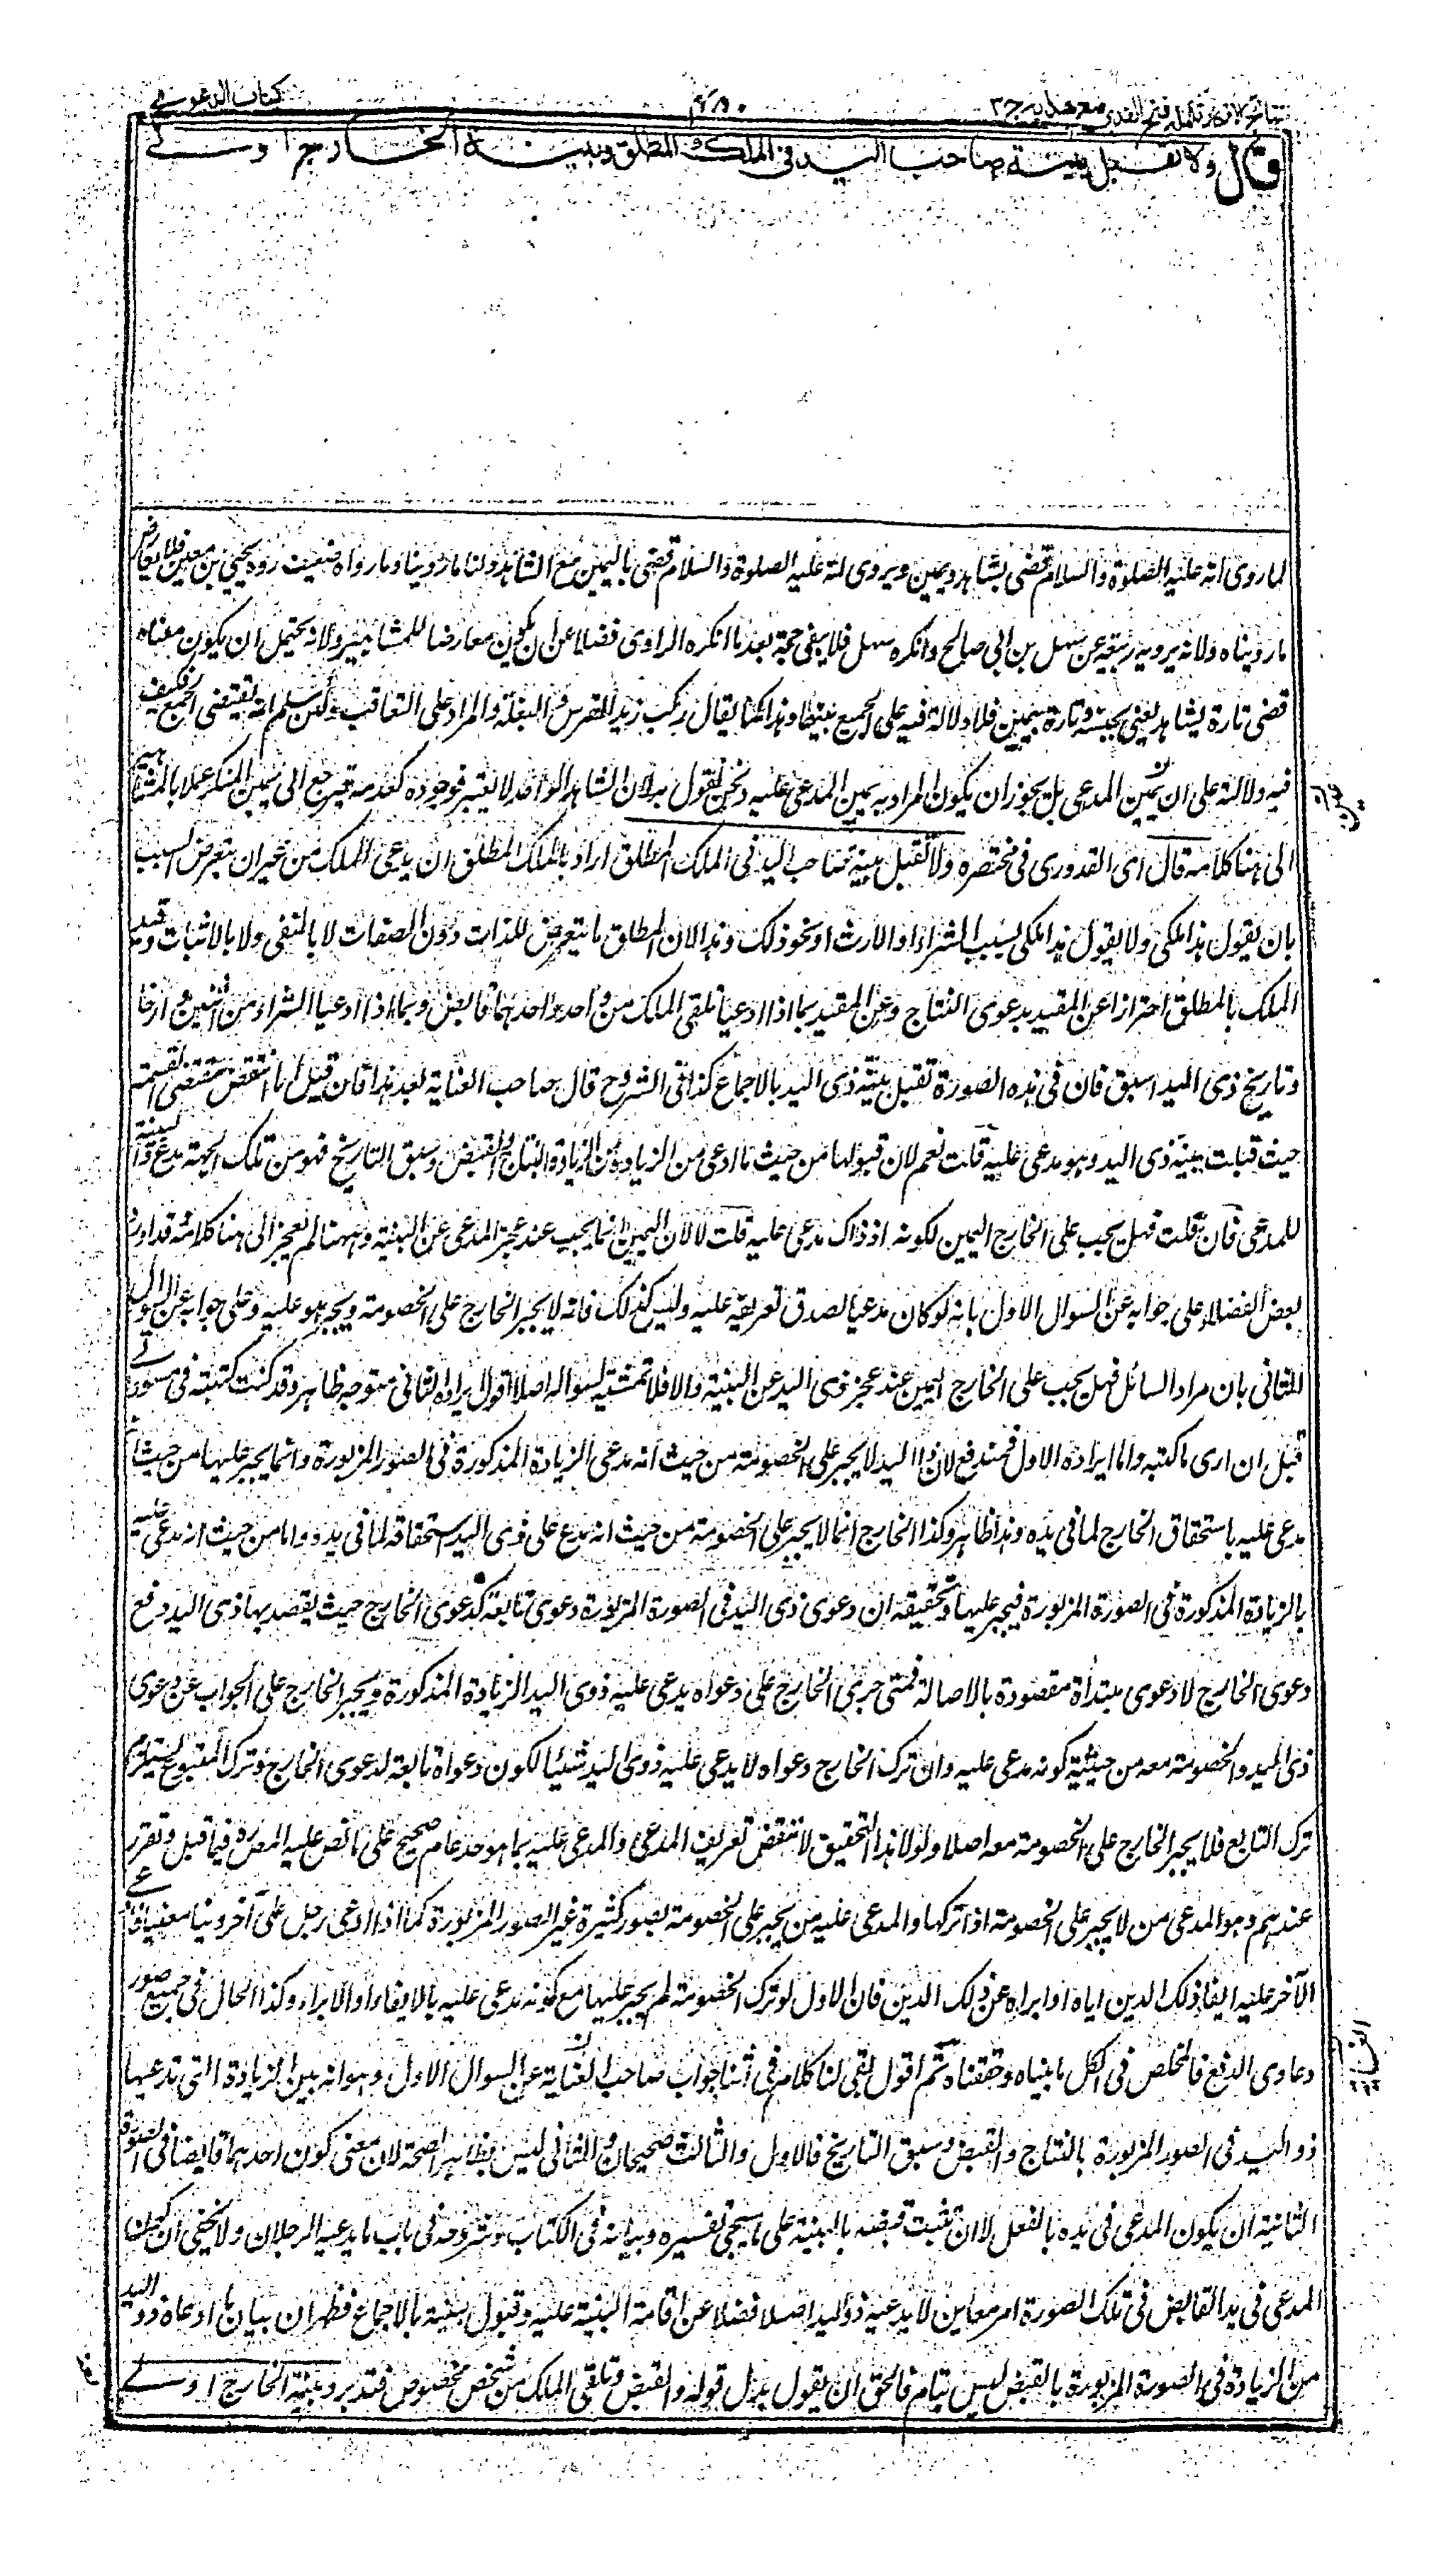 نتائج الافكار تكملة فتح القدير مع هدايه ج ٣
كتاب الدعوى
قال ولا تقبل بينة صاحب اليد في الملك المطلق وبينة الخارج اولى
لما روى انه عليه الصلوة والسلام قضى بشاهد ويمين ويروى انه عليه الصلوة والسلام قضى باليمين مع الشاهد ولنا ما روينا وما رواه ضعيف رده يحيى بن معين فلا يعارض
ما رويناه ولانه يرويه ربيعة عن سهل بن ابى صالح وانكره سهل فلا يبقى حجة بعد ما انكره الراوى فضلا عن ان يكون معارضا للمشاهير ولانه يحتمل ان يكون معناه
قضى تارة بشاهد يعنى بجنسه وتارة بيمين فلا دلالة فيه على الجمع بينهما وهذا كما يقال ركب زيد الفرس والبغلة والمراد على التعاقب ولئن سلم انه يقتضى الجمع فكيف
فيه دلالة على ان يمين المدعى بل يجوز ان يكون المراد به يمين المدعى عليه ونحن نقول به لان الشاهد الواحد لا يعتبر فوجوده كعدمه فيرجع الى يمين المنكر عملا بالمشاهير
الى هنا كلامه قال اى القدورى فى مختصره ولا تقبل بينة صاحب اليد فى الملك المطلق اراد بالملك المطلق ان يدعى الملك من غير ان يتعرض للسبب
بان يقول هذا ملكى ولا يقول هذا ملكى بسبب الشراء او الارث او نحو ذلك وهذا لان المطلق ما يتعرض للذات دون الصفات لا بالنفى ولا بالاثبات وقيد
الملك بالمطلق احترازا عن المقيد بدعوى النتاج وعن المقيد بما اذا ادعيا تلقى الملك من واحد واحدهما قابض وبما اذا ادعيا الشراء من اثنين وارخا
وتاريخ ذى اليد اسبق فان فى هذه الصورة تقبل بينة ذى اليد بالاجماع كذا فى الشروح قال صاحب العناية بعد هذا فان قيل اما انتقض مقتضى القسمة
حيث قبلت بينة ذى اليد وهو مدعى عليه قلت نعم لان قبولها من حيث ما ادعى من الزيادة من الزيادة النتاج والقبض وسبق التاريخ فهو من تلك الجهة مدع والبينة
للمدعى فان قلت فهل يجب على الخارج اليمين لكونه اذ ذاك مدعى عليه قلت لا لان اليمين انما يجب عند عجز المدعى عن البينة وههنا لم يعجز الى هنا كلامه قد اورد
بعض الفضلاء على جوابه عن السوال الاول بانه لو كان مدعيا لصدق تعريفه عليه وليس كذلك فانه لا يجبر الخارج على الخصومة ويجبر هو عليه وعلى جوابه عن السوال
الثانى بان مراد السائل فهل يجب على الخارج اليمين عند عجز ذى اليد عن البينة والا فلا تمشية لسواله اصلا اقول ايراده الثانى متوجه ظاهر وقد كنت كتبته فى مسودتى
قبل ان ارى ما كتبه واما ايراده الاول فمندفع لان ذا اليد لا يجبر على الخصومة من حيث انه مدعى الزيادة المذكورة فى الصور المزبورة وانما يجبر عليها من حيث انه
مدعى عليه باستحقاق الخارج لما فى يده وهذا ظاهر وكذا الخارج انما لا يجبر على الخصومة من حيث انه مدع على ذى اليد استحقاقه لما فى يده واما من حيث انه مدعى عليه
بالزيادة المذكورة فى الصورة المزبورة فيجبر عليها وتحقيقه ان دعوى ذى اليد فى الصورة المزبورة دعوى تابعة لدعوى الخارج حيث يقصد بها ذى اليد دفع
دعوى الخارج لا دعوى مبتدأة مقصودة بالاصالة فمتى جرى الخارج على دعواه يدعى عليه ذوى اليد الزيادة المذكورة ويجبر الخارج على الجواب عن دعوى
ذى اليد والخصومة معه من حيثية كونه مدعى عليه وان ترك الخارج دعواه لا يدعى عليه ذوى اليد شيئا لكون دعواه تابعة لدعوى الخارج وترك المتبوع يستلزم
ترك التابع فلا يجبر الخارج على الخصومة معه اصلا ولولا هذا التحقيق لانتقض تعريف المدعى والمدعى عليه بما هو حد عام صحيح على ما نص عليه المصره فيما قبل وتقرر
عندهم وهو المدعى من لا يجبر على الخصومة اذا تركها والمدعى عليه من يجبر على الخصومة بصور كثيرة غير الصور المزبورة كما اذا ادعى رجل على آخر دينا معينا فادعى
الآخر عليه ايفاء ذلك الدين اياه او ابراه عن ذلك الدين فان الاول لو ترك الخصومة لم يجبر عليها مع كونه مدعى عليه بالايفاء او الابراء وكذا الحال فى جميع صور
دعاوى الدفع فالمخلص فى الكل ما بيناه وحققناه ثم اقول بقى لنا كلام فى اثناء جواب صاحب العناية عن السوال الاول وهو انه بين الزيادة التى تدعيها
ذو اليد فى الصور المزبورة بالنتاج والقبض وسبق التاريخ فالاول والثالث صحيحان والثانى ليس بظاهر الصحة لان معنى كون احدهما قابضا فى الصورة
الثانية ان يكون المدعى فى يده بالفعل لا ان تثبت قبضه بالبينة على ما سيجئ تفسيره وبيانه فى الكتاب وشروحه فى باب ما يدعيه الرجلان ولا يخفى ان كون
المدعى فى يد القابض فى تلك الصورة امر معاين لا يدعيه ذو اليد اصلا فضلا عن اقامة البينة عليه وقبول بينته بالاجماع فظهر ان بيان ما ادعاه ذو اليد
من الزيادة فى الصورة المزبورة بالقبض ليس بتام فالحق ان يقول بدل قوله والقبض وتلقى الملك من شخص مخصوص فتدبر وبينة الخارج اولى